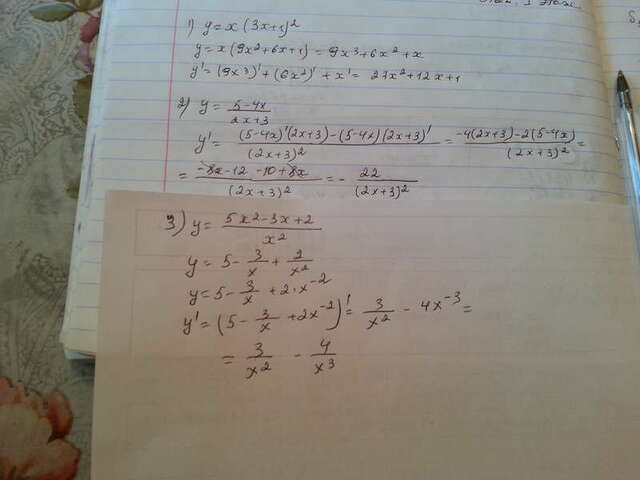 1) y = x (3x+1)²
y = x (9x²+6x+1) = 9x³+6x²+x
y' = (9x³)' + (6x²)' + x' = 27x²+12x+1
2) y = (5-4x)/(2x+3)
y' = ((5-4x)'(2x+3) - (5-4x)(2x+3)')/(2x+3)² = (-4(2x+3) - 2(5-4x))/(2x+3)² =
= (-8x-12-10+8x)/(2x+3)² = - 22/(2x+3)²
3) y = (5x²-3x+2)/x²
y = 5 - 3/x + 2/x²
y = 5 - 3/x + 2·x⁻²
y' = (5 - 3/x + 2x⁻²)' = 3/x² - 4x⁻³ =
= 3/x² - 4/x³